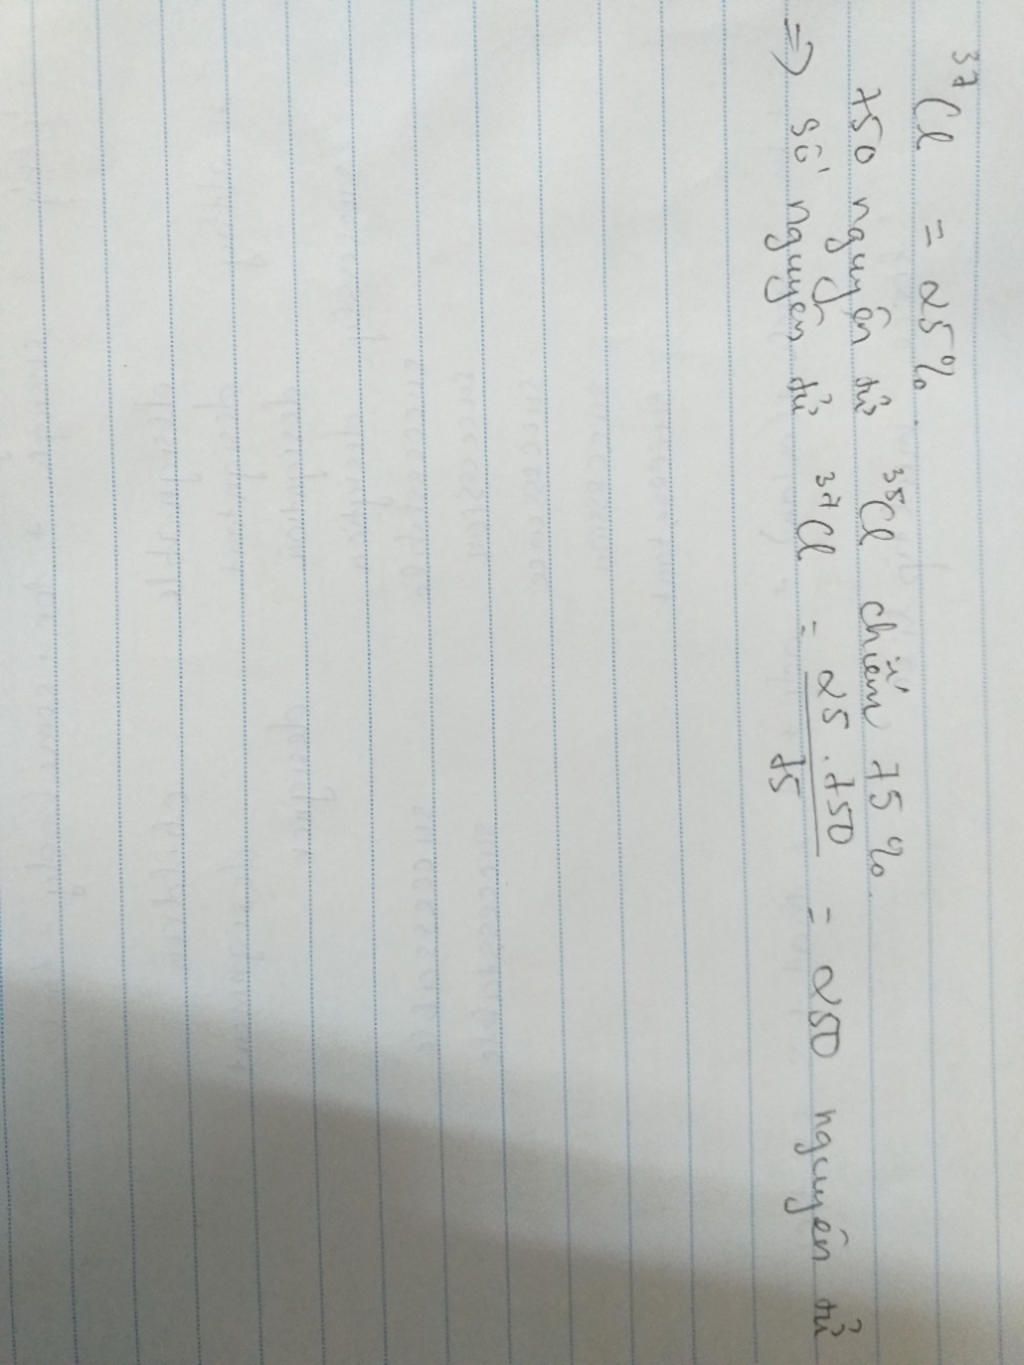 ³⁷Cl = 25%.
750 nguyên tử ³⁵Cl chiếm 75%.
=> Số nguyên tử ³⁷Cl = 25 . 750 / 75 = 250 nguyên tử